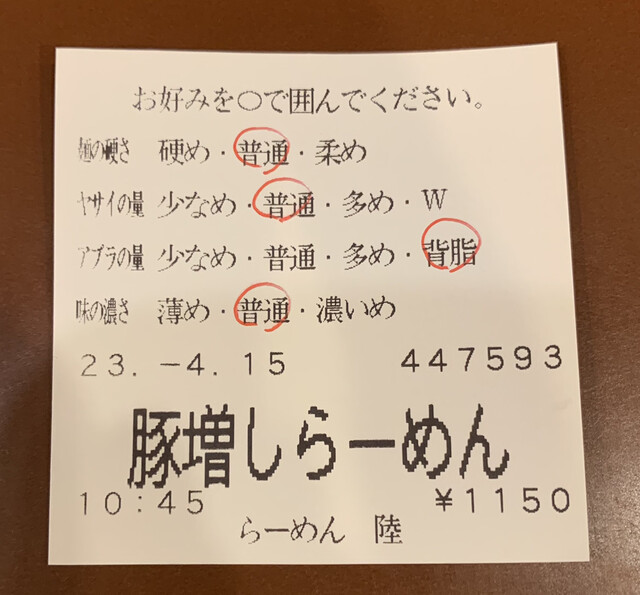 お好みを○で囲んでください。
麺の硬さ 硬め・普通・柔め
ヤサイの量 少なめ・普通・多め・W
アブラの量 少なめ・普通・多め・背脂
味の濃さ 薄め・普通・濃いめ
23.-4.15 447593
豚増しらーめん
10:45 ¥1150
らーめん 陸